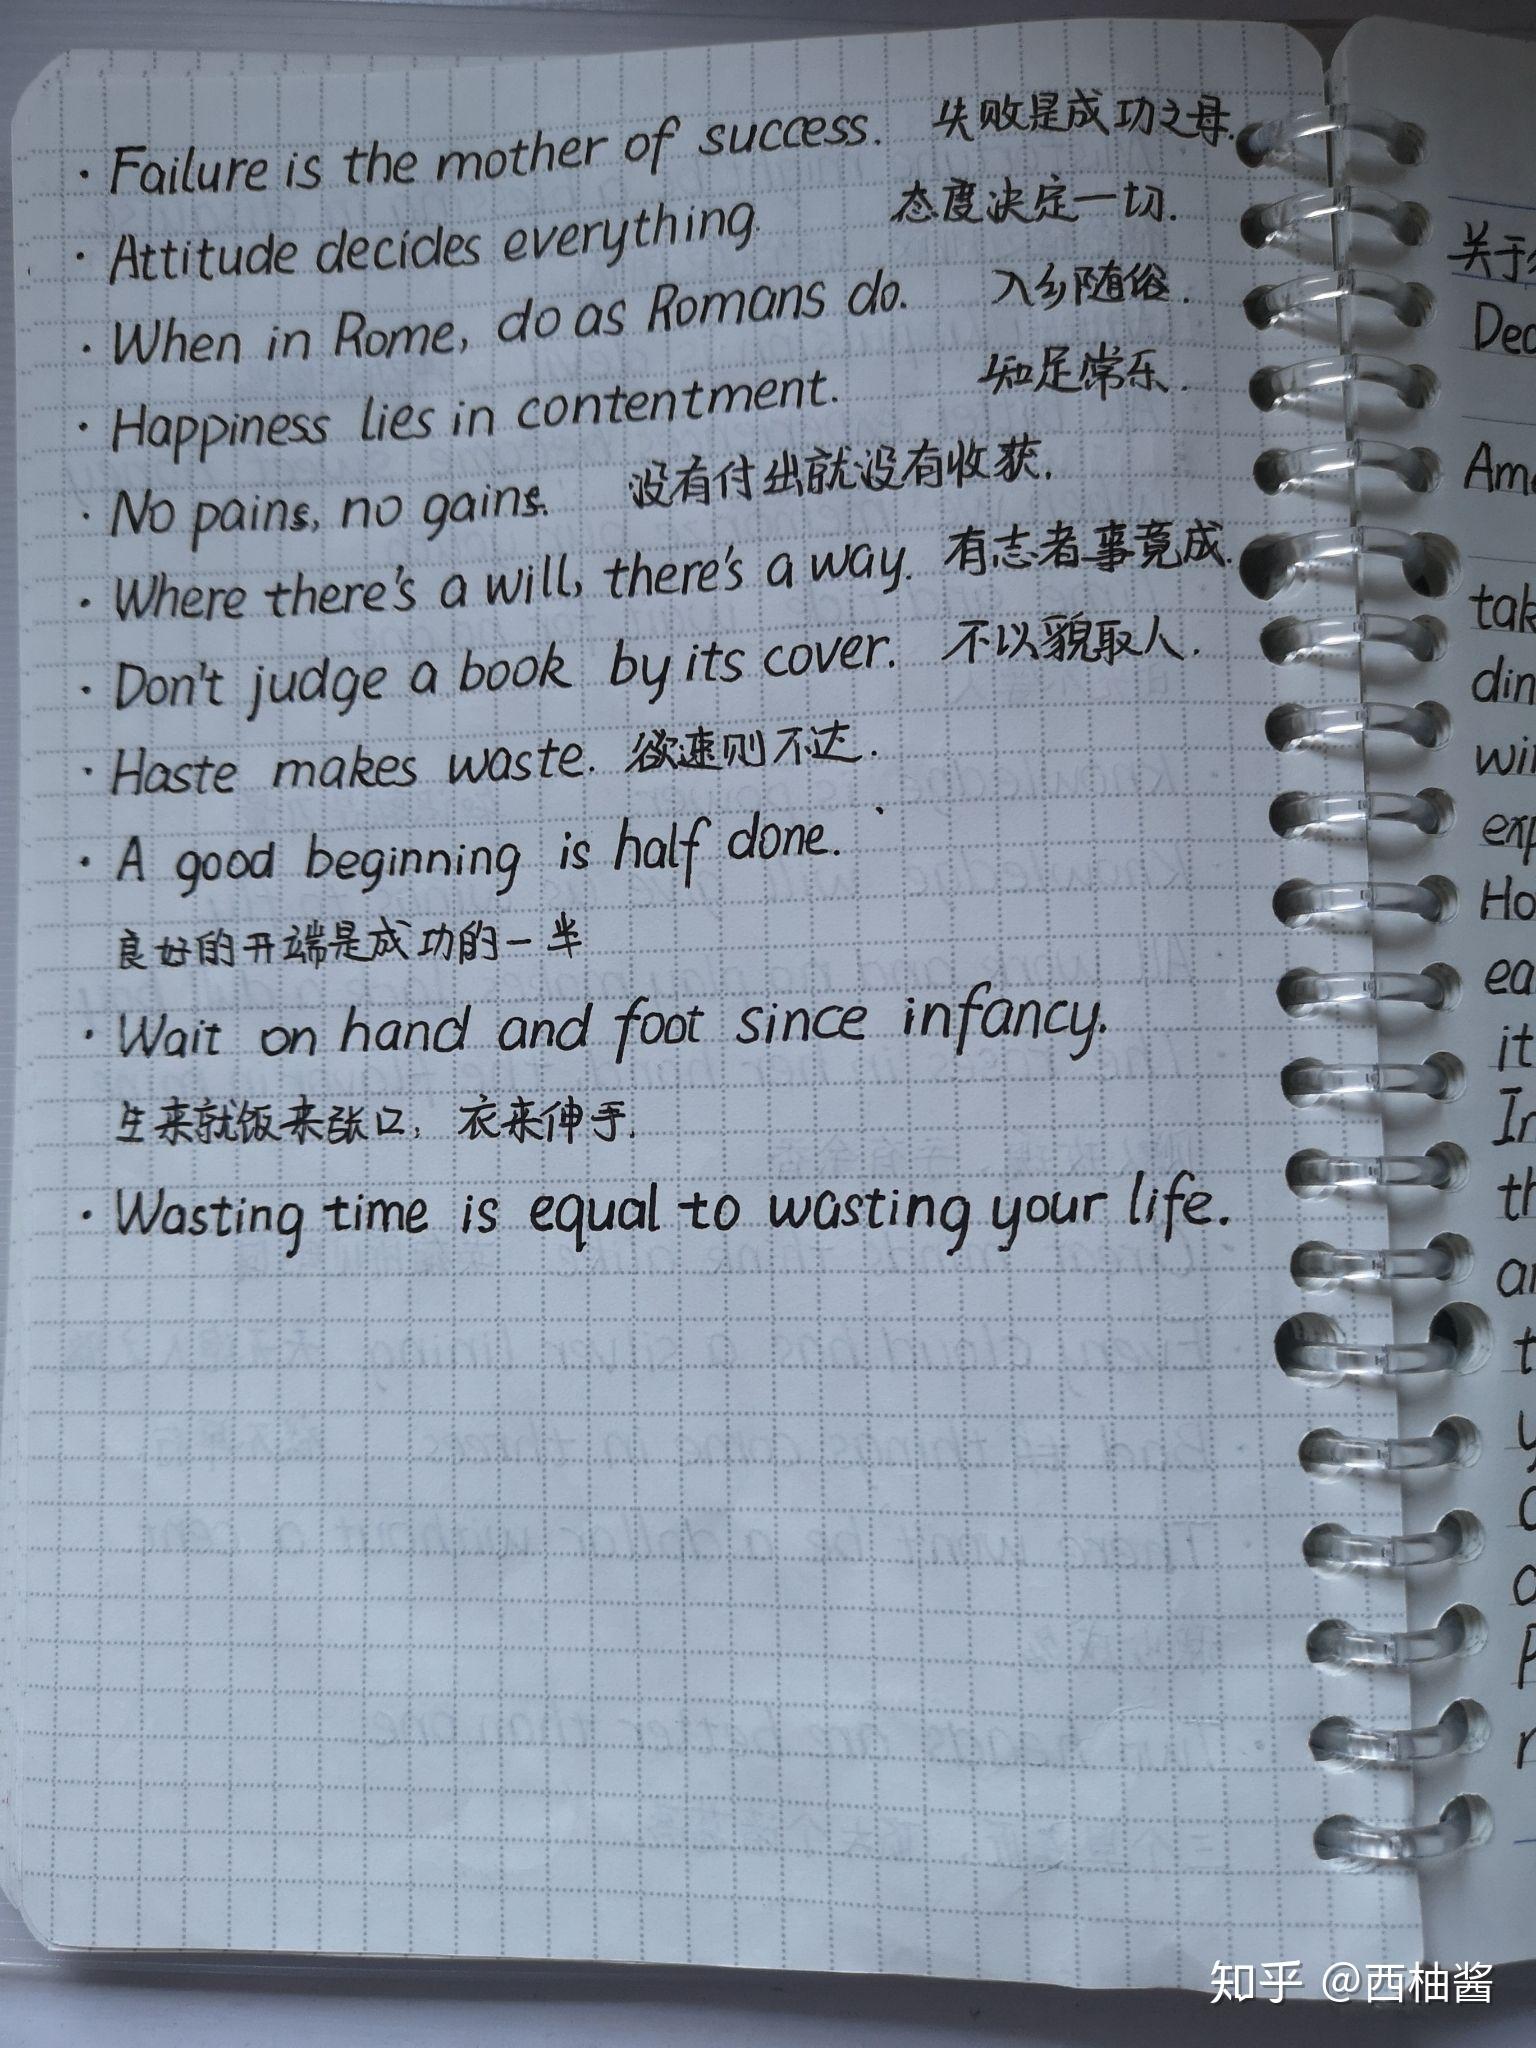 · Failure is the mother of success. 失败是成功之母.
· Attitude decides everything. 态度决定一切.
· When in Rome, do as Romans do. 入乡随俗.
· Happiness lies in contentment. 知足常乐.
· No pains, no gains. 没有付出就没有收获.
· Where there's a will, there's a way. 有志者事竟成.
· Don't judge a book by its cover. 不以貌取人.
· Haste makes waste. 欲速则不达.
· A good beginning is half done.
良好的开端是成功的一半
· Wait on hand and foot since infancy.
生来就饭来张口, 衣来伸手.
· Wasting time is equal to wasting your life.
关于
Dea
Ame
tak
din
wi
exp
Ho
ea
it
In
th
an
t
y
知乎 @西柚酱